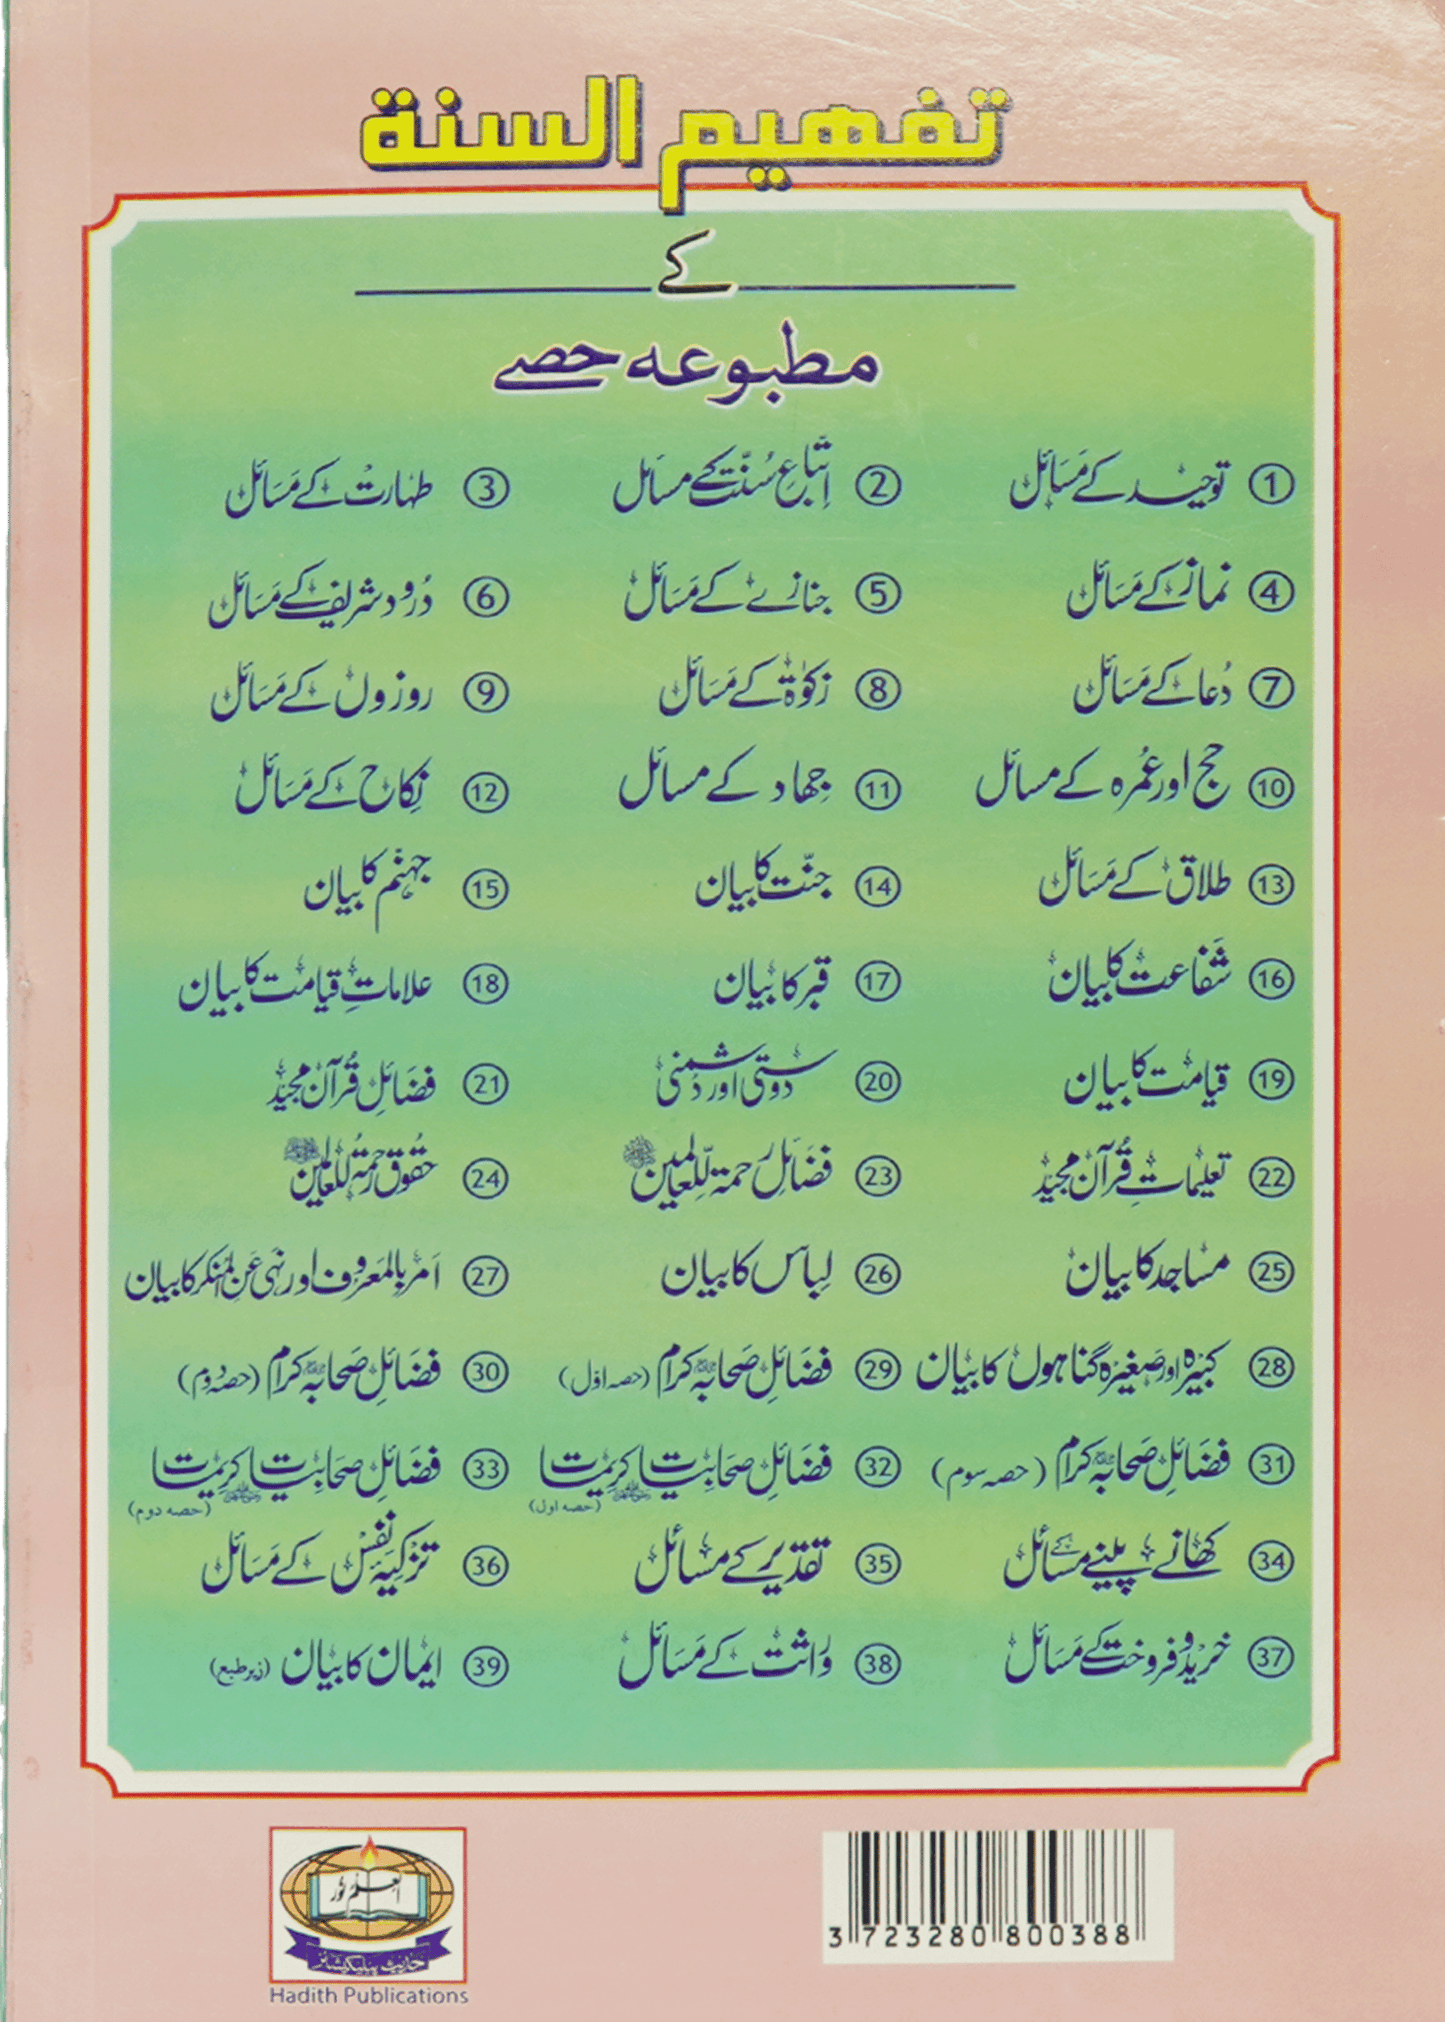 تفہیم السنة
کے
مطبوعہ حصے
① توحید کے مسائل ② اتباع سنت کے مسائل ③ طہارت کے مسائل
④ نماز کے مسائل ⑤ جنازے کے مسائل ⑥ درود شریف کے مسائل
⑦ دعا کے مسائل ⑧ زکوٰۃ کے مسائل ⑨ روزوں کے مسائل
⑩ حج اور عمرہ کے مسائل ⑪ جہاد کے مسائل ⑫ نکاح کے مسائل
⑬ طلاق کے مسائل ⑭ جنت کا بیان ⑮ جہنم کا بیان
⑯ شفاعت کا بیان ⑰ قبر کا بیان ⑱ علاماتِ قیامت کا بیان
⑲ قیامت کا بیان ⑳ دوستی اور دشمنی ㉑ فضائلِ قرآن مجید
㉒ تعلیماتِ قرآن مجید ㉓ فضائل رحمۃ للعالمین ﷺ ㉔ حقوق رحمۃ للعالمین ﷺ
㉕ مساجد کا بیان ㉖ لباس کا بیان ㉗ امر بالمعروف اور نہی عن المنکر کا بیان
㉘ کبیرہ اور صغیرہ گناہوں کا بیان ㉙ فضائلِ صحابہ کرام (حصہ اول) ㉚ فضائلِ صحابہ کرام (حصہ دوم)
㉛ فضائلِ صحابہ کرام (حصہ سوم) ㉜ فضائلِ صحابیات کریمات (حصہ اول) ㉝ فضائلِ صحابیات کریمات (حصہ دوم)
㉞ کھانے پینے کے مسائل ㉟ تقدیر کے مسائل ㊱ تزکیہ نفس کے مسائل
㊲ خرید و فروخت کے مسائل ㊳ وراثت کے مسائل ㊴ ایمان کا بیان (زیر طبع)
العلم نور
حدیث پبلیکیشنز
Hadith Publications
3 723280 800388